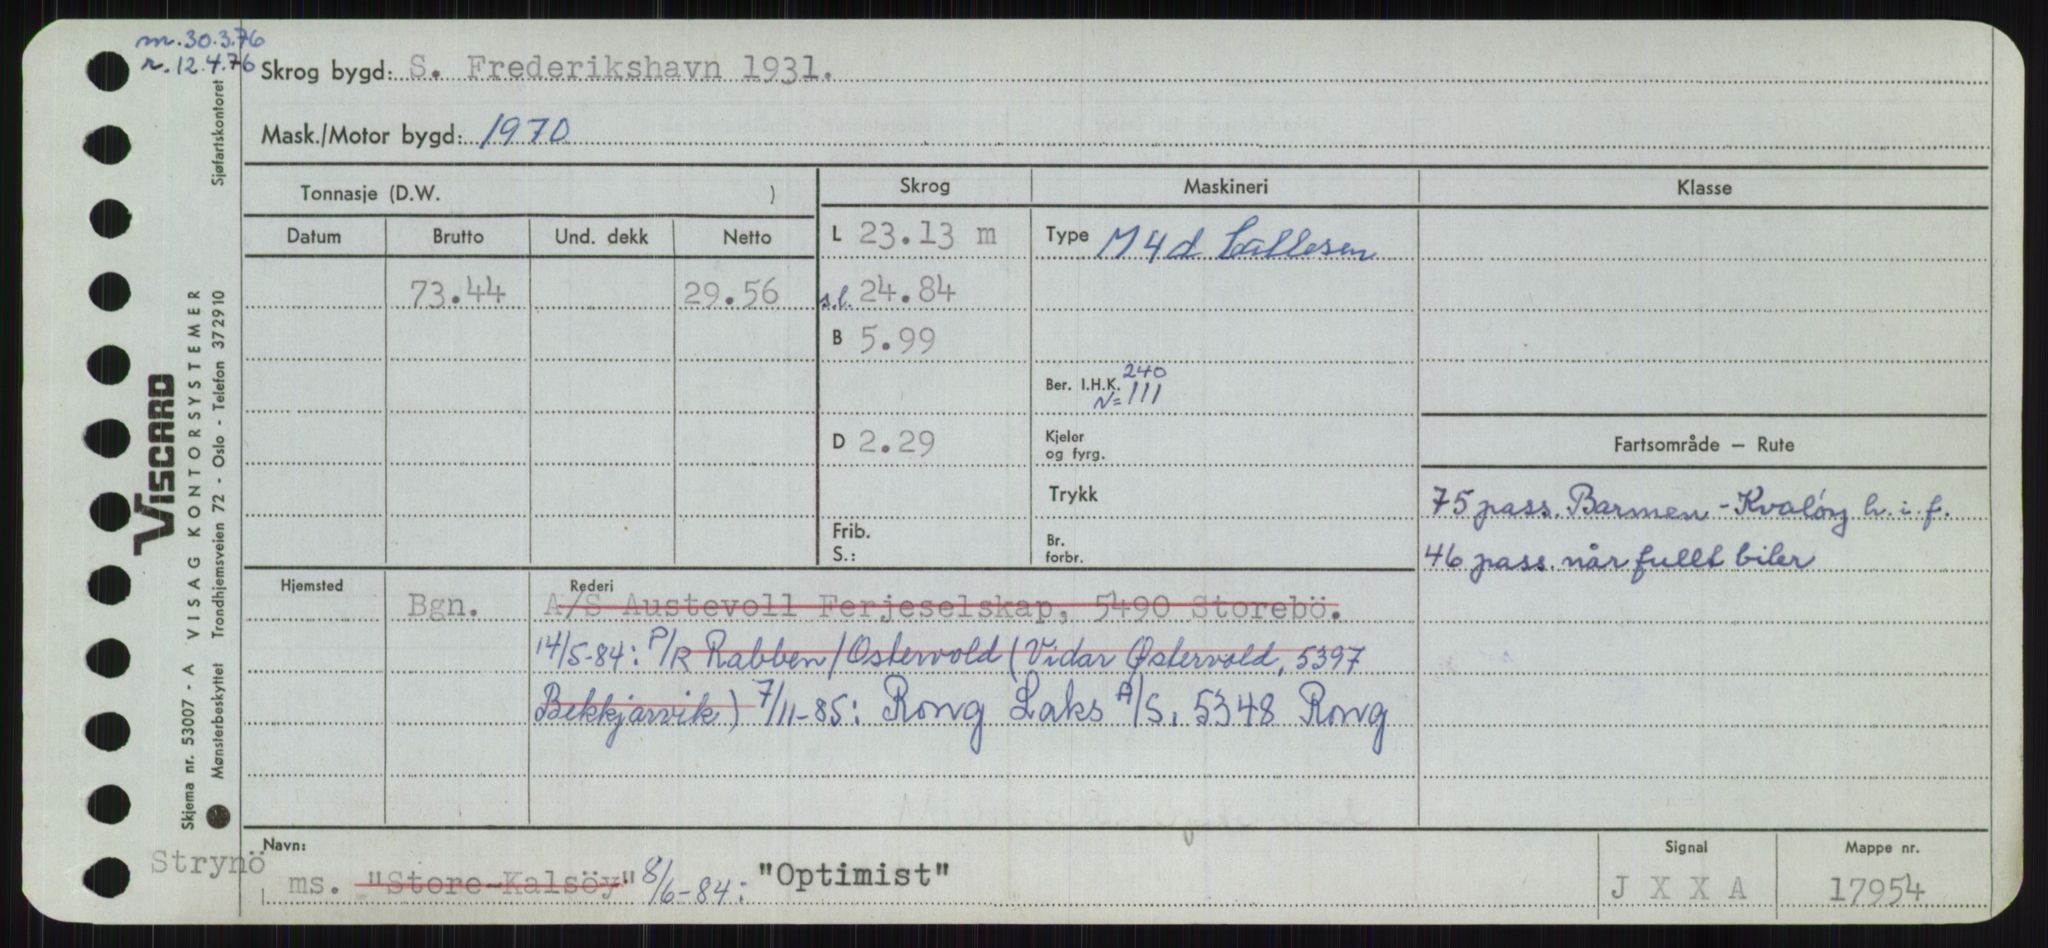 m. 30.3.76
r. 12.4.76
Skrog bygd: S. Frederikshavn 1931.
Mask./Motor bygd: 1970
Tonnasje (D.W. )
Skrog
Maskineri
Klasse
Datum
Brutto
Und. dekk
Netto
L 23.13 m
Type M4d Callesen
73.44
29.56
s.l. 24.84
B 5.99
240
Ber. I.H.K.
N= 111
D 2.29
Kjeler
og fyrg.
Fartsområde — Rute
Trykk
75 pass. Barmen - Kvaløy h.i.f.
Frib.
S.:
Br.
forbr.
46 pass. når fullt biler
Hjemsted
Rederi
Bgn.
A/S Austevoll Ferjeselskap, 5490 Storebö.
14/5-84: P/R Rabben/Ostervold (Vidar Østervold, 5397
Bekkjarvik) 7/11-85: Rong Laks A/S, 5348 Rong
Navn:
Signal
Mappe nr.
Strynö
ms. "Store-Kalsöy" 8/6-84: "Optimist"
J X X A
17954
Sjøfartskontoret
VISCARD
VISAG KONTORSYSTEMER
Trondhjemsveien 72 - Oslo - Telefon 372910
Skjema nr. 53007 - A
Mønsterbeskyttet